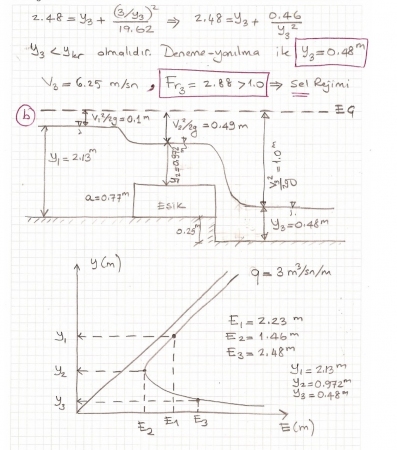 2.48 = y₃ + (3/y₃)²/19.62 ⇒ 2.48 = y₃ + 0.46/y₃²
y₃ < ykr olmalıdır. Deneme-yanılma ile y₃ = 0.48 m
V₃ = 6.25 m/sn , Fr₃ = 2.88 > 1.0 ⇒ Sel Rejimi
b
EG
V₁²/2g = 0.1 m
V₂²/2g = 0.49 m
y₁ = 2.13 m
y₂ = 0.972 m
a = 0.77 m
EŞİK
0.25 m
y₃ = 0.48 m
y (m)
q = 3 m³/sn/m
E₁ = 2.23 m
E₂ = 1.46 m
E₃ = 2.48 m
y₁ = 2.13 m
y₂ = 0.972 m
y₃ = 0.48 m
y₁
y₂
y₃
E₂ E₁ E₃ E (m)